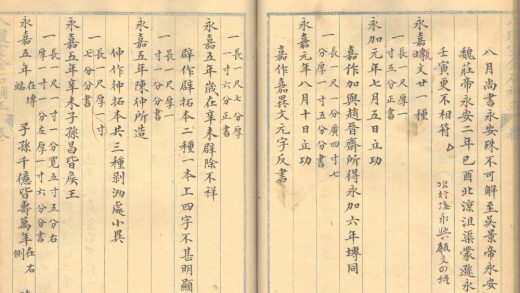 八月尚書永安殊不可解至吳景帝永安
魏莊帝永安二年已酉北涼沮渠蒙遜永
壬寅更不相符
永嘉塼文廿一種
甎
永加元年七月五日立功
一長尺厚一寸分廣四寸七
嘉作加與趙晉齋所得永加六年塼同
永嘉元年八月十日立功
嘉作嘉異文元字反書
一長尺厚一寸六分正書
永嘉五年歲在辛未辟除不祥
一長尺七分厚一寸分書
辟作辟拓本二種一本上四字不甚明顯
永嘉五年陳仲所造
一長尺厚一寸六分分書
仲作仲拓本共三種剝泐處小異
永嘉五年辛未子孫昌皆矦王
一長尺厚一寸七分分書
永嘉五年在塼端 子孫千億皆壽萬年在右側
一厚一寸一分寬五寸五分右
一寸一分左厚一寸六分分書